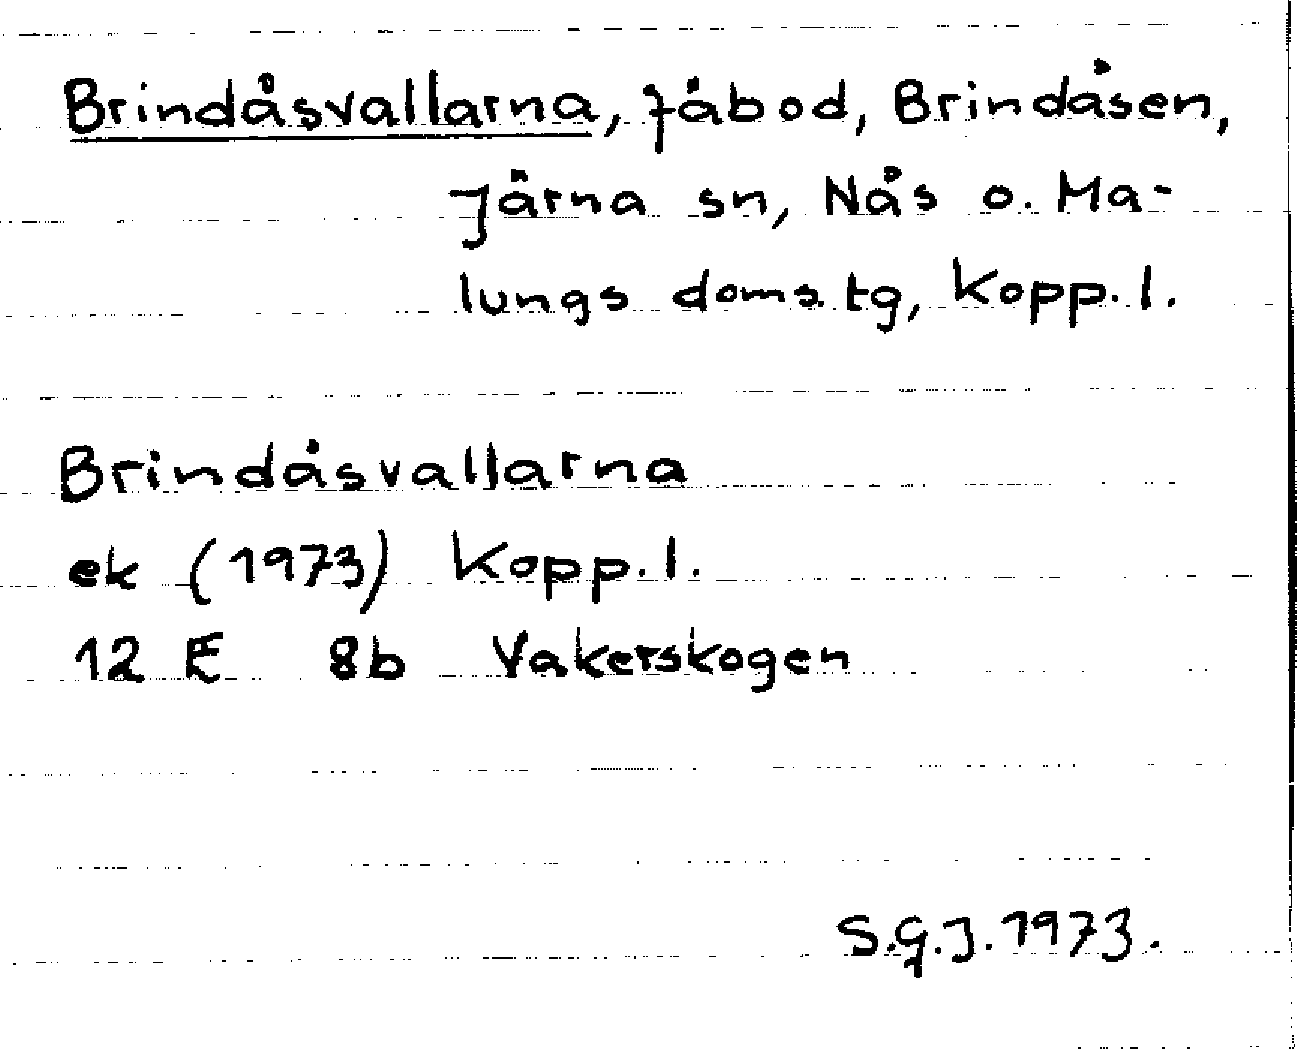 Brindåsvallarna, fäbod, Brindåsen,
Järna sn, Nås o. Ma-
lungs doms. tg, Kopp. l.
Brindåsvallarna
ek (1973) Kopp. l.
12 E 8b Vakerskogen
S.G.J. 1973.